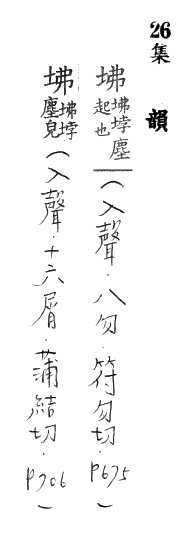 26
集韻
坲坲㘧塵起也(入聲.八勿.符勿切.P675)
坲坲㘧塵皃(入聲.十六屑.蒲結切.P706)